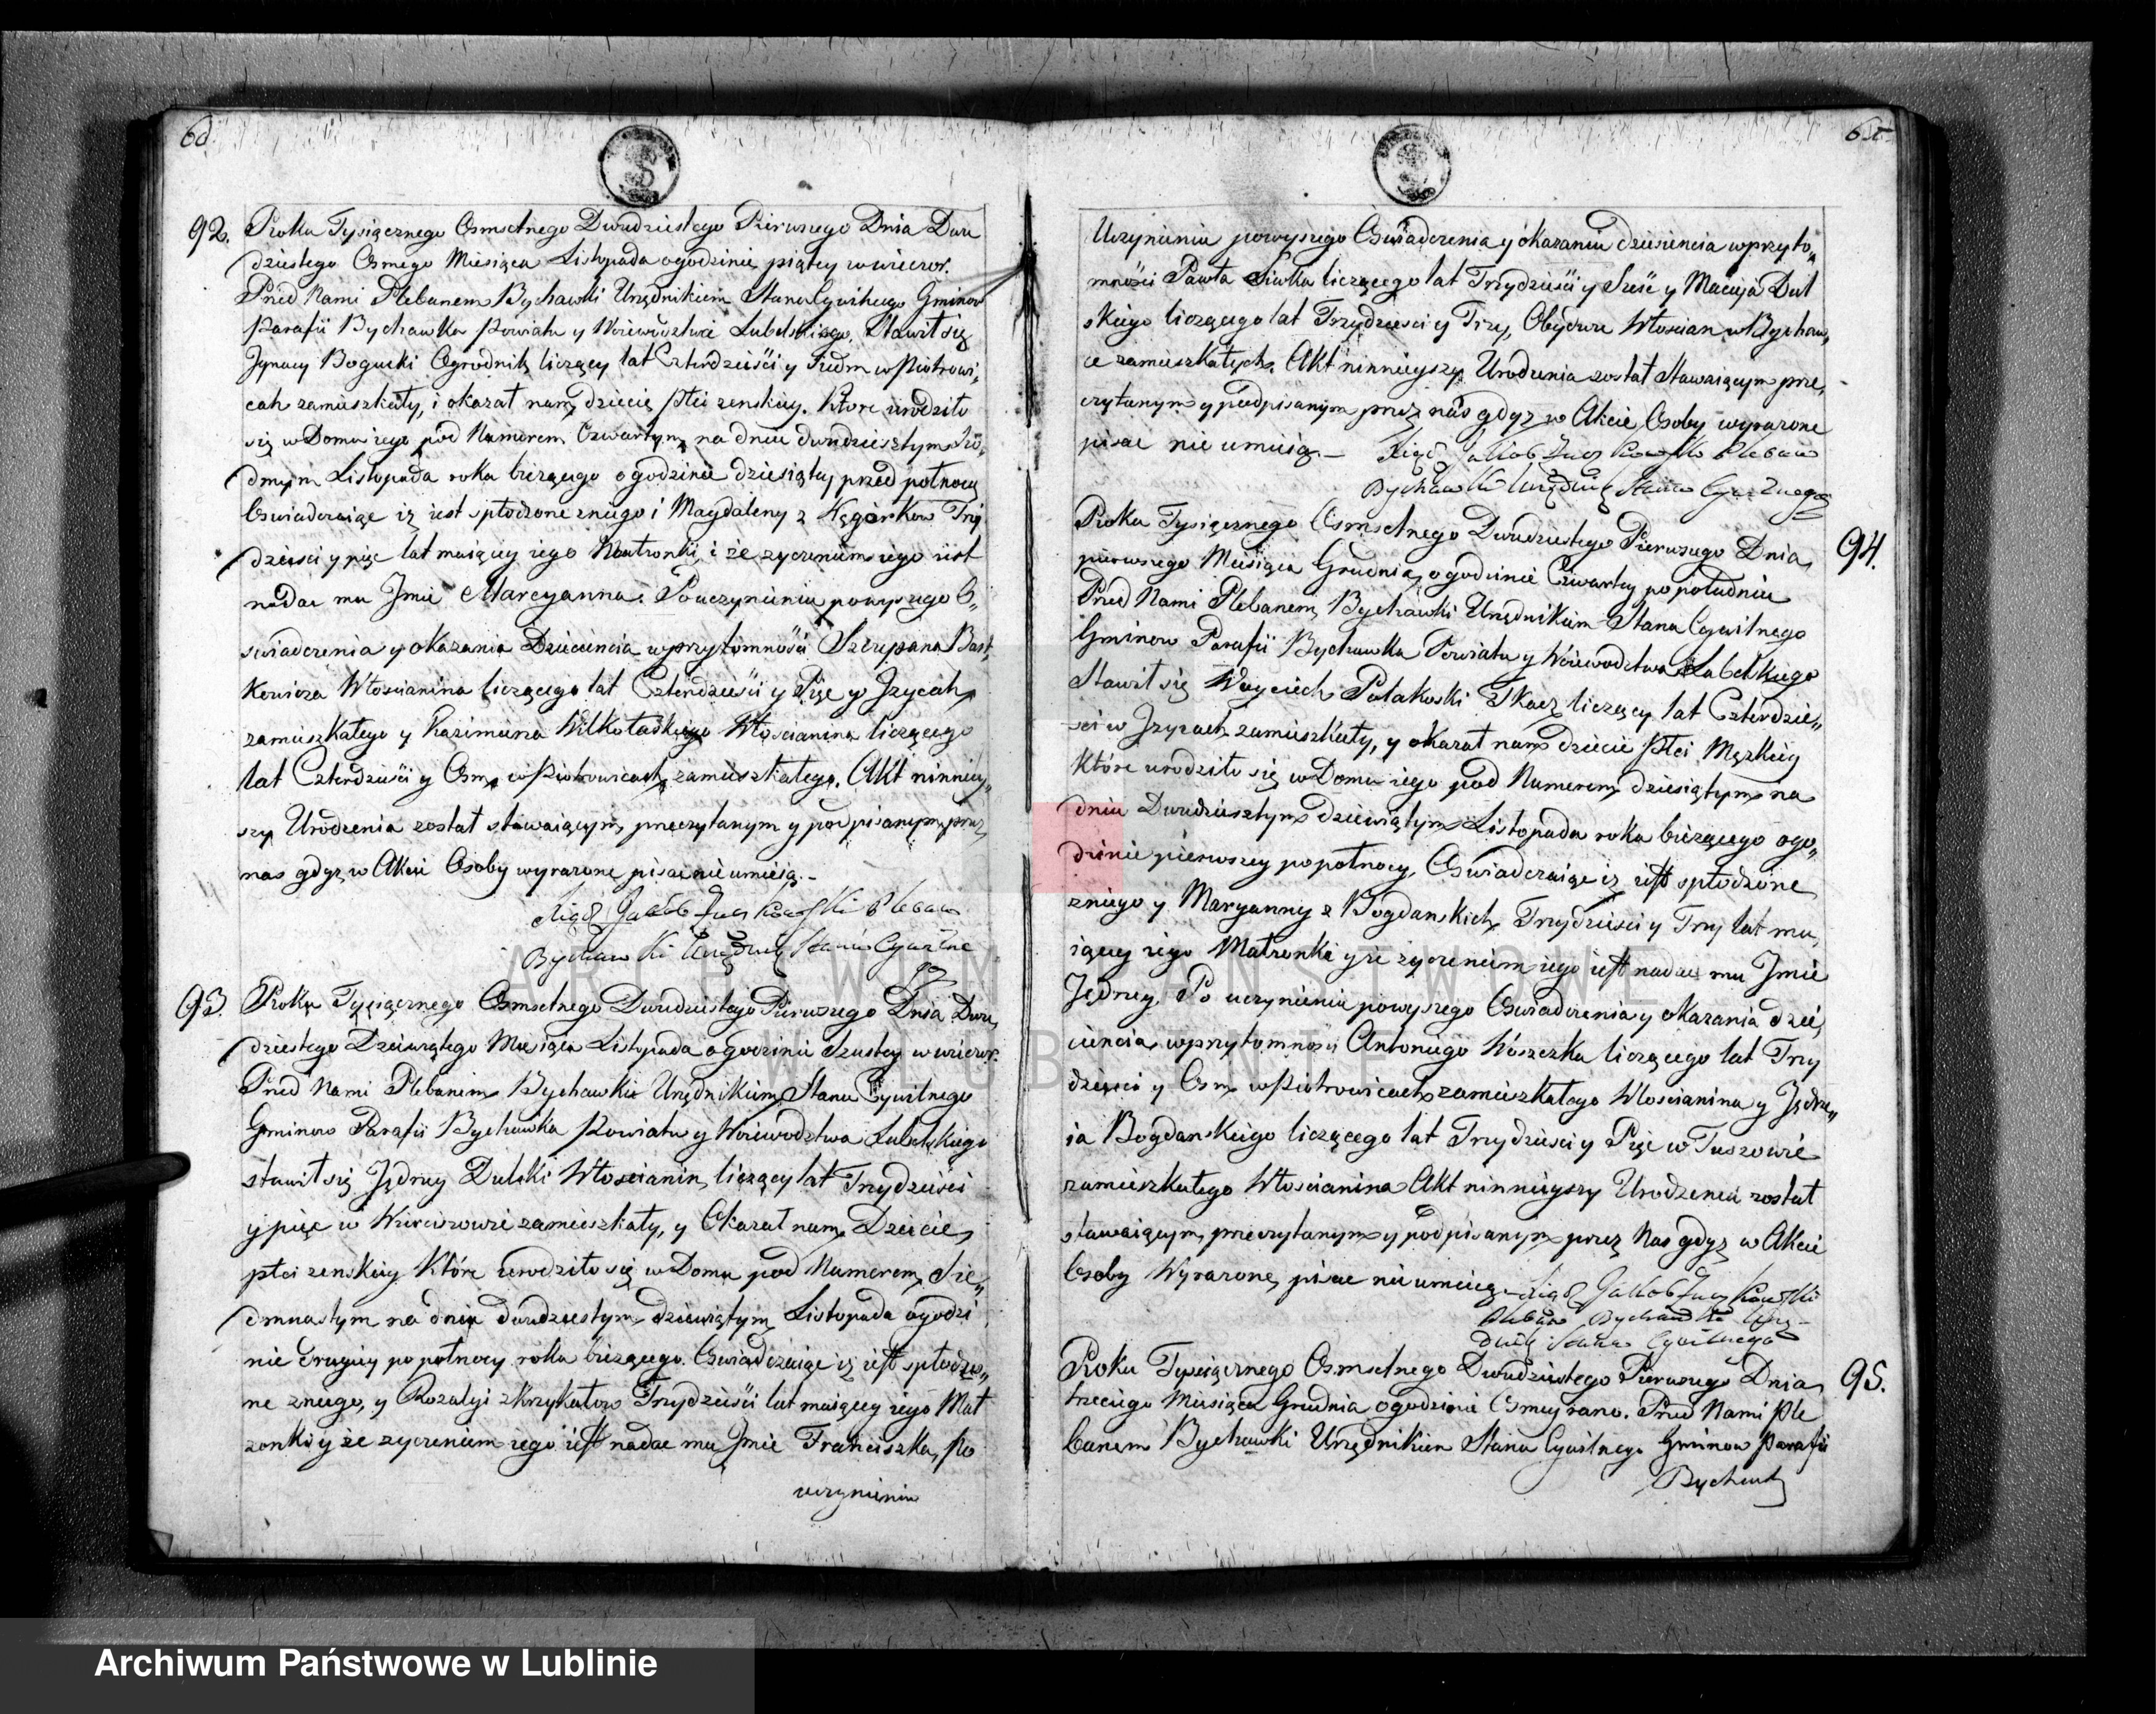 60
92. Roku Tysiącznego Osmsetnego Dwudziestego Pierwszego Dnia Dwu
dziestego Osmego Miesiąca Listopada o godzinie piątey w wieczor.
Przed Nami Plebanem Bychawki Urzędnikiem Stanu Cywilnego Gminow
Parafii Bychawka Powiatu y Woiewodztwa Lubelskiego. Stawił się
Jgnacy Bogucki Ogrodnik liczący lat Czterdzieści y Siedm w Piotrowi„
cach zamieszkały, i okazał nam dziecię płci zenskiey. Ktore urodziło
się w Domu iego pod Numerem Czwartym na dniu dwudziestym Sio„
dmym Listopada roku biezącego o godzinie dziesiątey przed połnocą
Oswiadczaiąc iz iest spłodzone z niego i Magdaleny z Węgorkow Trzy
dziesci y pięc lat maiącey iego Małzonki, i że zyczeniem iego iest
nadac mu Jmie Maryanna. Po uczynieniu powyszego O„
swiadczenia y okazania Dziecięcia w przytomności Szczepana Bast„
kewicza Włoscianina liczącego lat Czterdzieści y Pięc w Jzycach
zamieszkałego y Kazimierza Wilkołaskiego Włoscianina liczącego
lat Czterdzieści y Osm w Piotrowicach zamieszkałego. Akt ninniey„
szy Urodzenia został stawaiącym przeczytanym y podpisanym przez
nas gdyz w Akcie Osoby wyrazone pisac nie umieią.–
Xiądz Jakob Pleban
Bychawki Urzędnik Stanu Cywilne
go
93. Roku Tysiącznego Osmsetnego Dwudziestego Pierwszego Dnia Dwu„
dziestego Dziewiątego Miesiąca Listopada o godzinie Szustey w wieczor.
Przed Nami Plebanem Bychawki Urzędnikiem Stanu Cywilnego
Gminow Parafii Bychawka Powiatu y Woiewodztwa Lubelskiego
stawił się Jędrzey Dulski Włoscianin, liczący lat Trzydzieści
y pięc w zamieszkały, y Okazał nam Dziecie
płci zenskiey Które urodziło się w Domu pod Numerem Sie„
dmnastym na dniu dwudziestym dziewiątym Listopada o godzi
nie drugiey po połnocy roku biezącego. Oswiadczaiąc iz iest spłodzo„
ne z niego, y Rozalyi z Trzydzieści lat maiącey iego Mał
zonki y że zyczeniem iego iest nadac mu Jmie Franciszka, Po
uczynieniu
Uczynieniu powyszego Oswiadczenia y okazaniu dziecięcia w przyto„
mności Pawła Siwka liczącego lat Trzydzieści y Sześc y Macieja Dul
skiego liczącego lat Trzydziesci y Trzy, Obydwu Włoscian w Bychaw„
ce zamieszkałych. Akt ninnieyszy Urodzenia został stawaiącym prze„
czytanym y podpisanym przez nas gdyz w Akcie Osoby wyrazone
pisac nie umieią.– Xiądz Jakob Pleban
Bychawki Urzędnik Stanu Cywilnego
94. Roku Tysiącznego Osmsetnego Dwudziestego Pierwszego Dnia
pierwszego Miesiąca Grudnia, o godzinie Czwartey po południu
Przed Nami Plebanem Bychawki Urzędnikiem Stanu Cywilnego
Gminow Parafii Bychawka Powiatu y Woiewodztwa Lubelskiego
Stawił się Woyciech Polakoski Tkacz liczący lat Czterdzie„
ści w Jzycach zamieszkały, y okazał nam dziecie płci Męzkiey
Które urodziło się w Domu iego pod Numerem dziesiątym na
dniu Dwudziestym dziewiątym Listopada roku biezącego o go„
dzinie pierwszey po połnocy, Oswiadczaiąc iz iest spłodzone
z niego y Maryanny z Bogdanskich Trzydziesci y Trzy lat ma„
iącey iego Małzonki y że zyczeniem iego iest nadac mu Jmie
Jędrzey, Po uczynieniu powyszego Oswiadczenia y okazania dzie„
cięncia w przytomnosci Antoniego Woszczka liczącego lat Trzy
dziesci y Osm w Piotrowicach zamieszkałego Włoscianina y Jędrze„
ia Bogdanskiego liczącego lat Trzydziesci y Pięc w Tuszowie
zamieszkałego Włoscianina Akt ninnieyszy Urodzenia został
stawaiącym przeczytanym y podpisanym przez Nas gdyz w Akcie
Osoby Wyrazone, pisac nie umieią.– Xiądz Jakob
Pleban Bychawki Urzę–
dnik Stanu Cywilnego
95. Roku Tysiącznego Osmsetnego Dwudziestego Pierwszego Dnia
trzeciego Miesiąca Grudnia o godzinie Osmey rano. Przed Nami Ple
banem Bychawki Urzędnikiem Stanu Cywilnego Gminow Parafii
Bychawka
ARCHIWUM PAŃSTWOWE
W LUBLINIE
Archiwum Państwowe w Lublinie